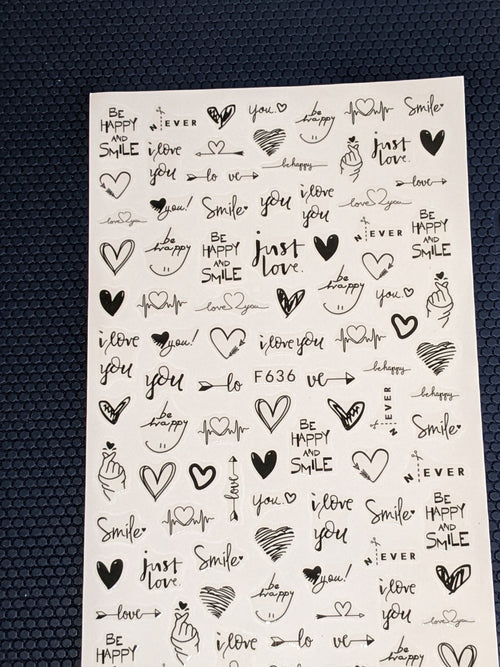 BE
HAPPY
AND
SMILE
NEVER
you.
be
happy
Smile
i love
you
just
love.
be happy
lo ve
love
love you
you!
Smile
you
i love
you
love you
NEVER
BE
HAPPY
AND
SMILE
be
happy
BE
HAPPY
AND
SMILE
just
love.
be
happy
you.
love you
i love
you
you!
i love you
be happy
you
lo
F636
ve
NEVER
be happy
be
happy
BE
HAPPY
AND
SMILE
Smile
love
NEVER
you.
i love
you
Smile
BE
HAPPY
AND
SMILE
Smile
just
love.
Smile
NEVER
be
happy
you!
i love
you
love
love you
BE
HAPPY
i love
lo ve
be
happy